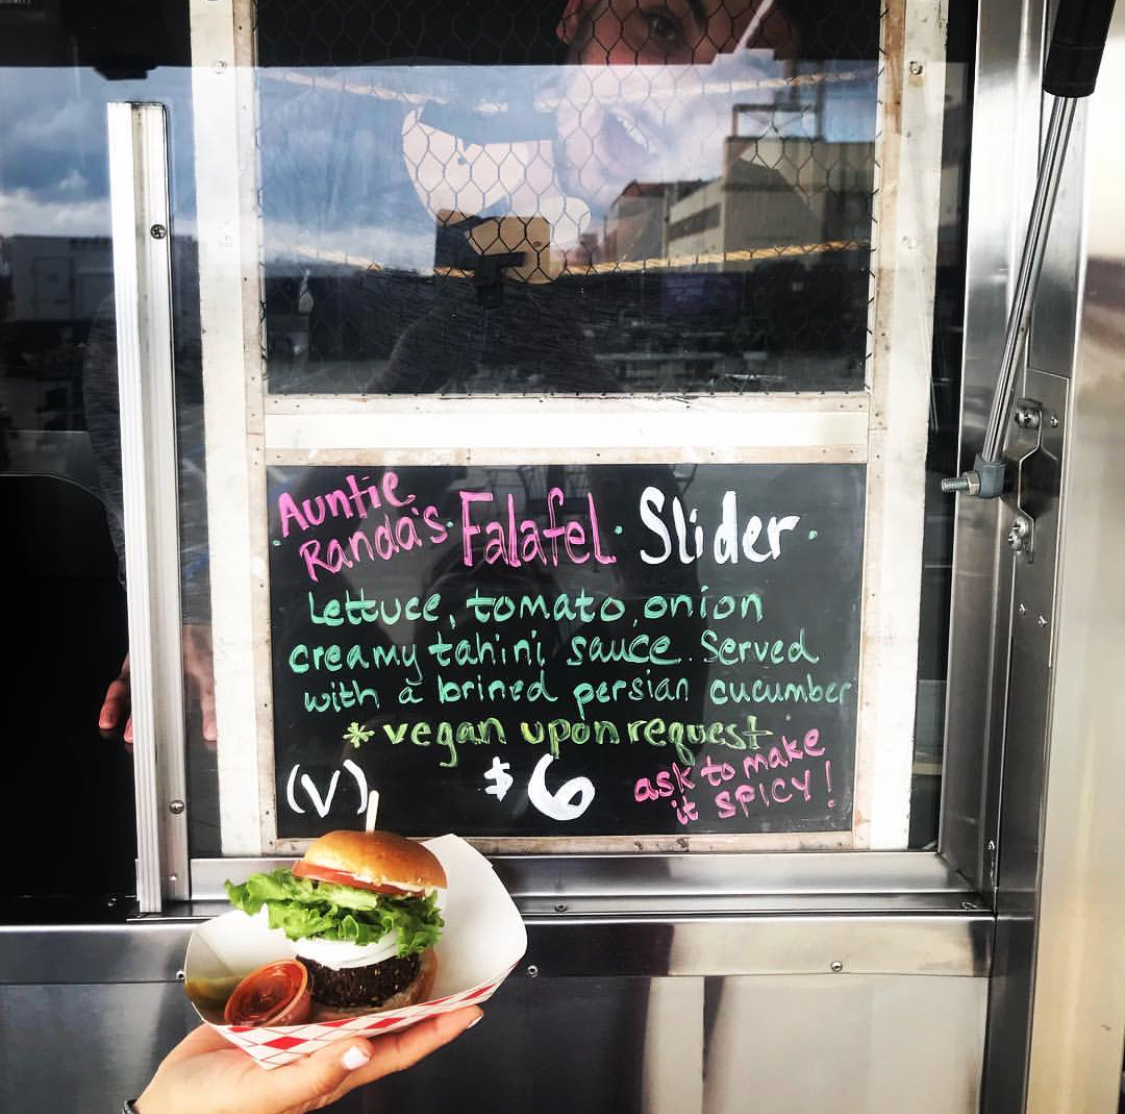 Auntie
Randa's · Falafel · Slider ·
Lettuce, tomato, onion
creamy tahini sauce. Served
with a brined persian cucumber
* vegan upon request
(V) $6 ask to make
it SPICY!